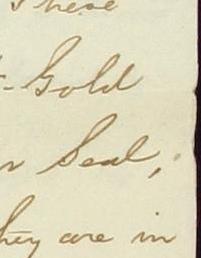 These
Gold
Seal,
they are in